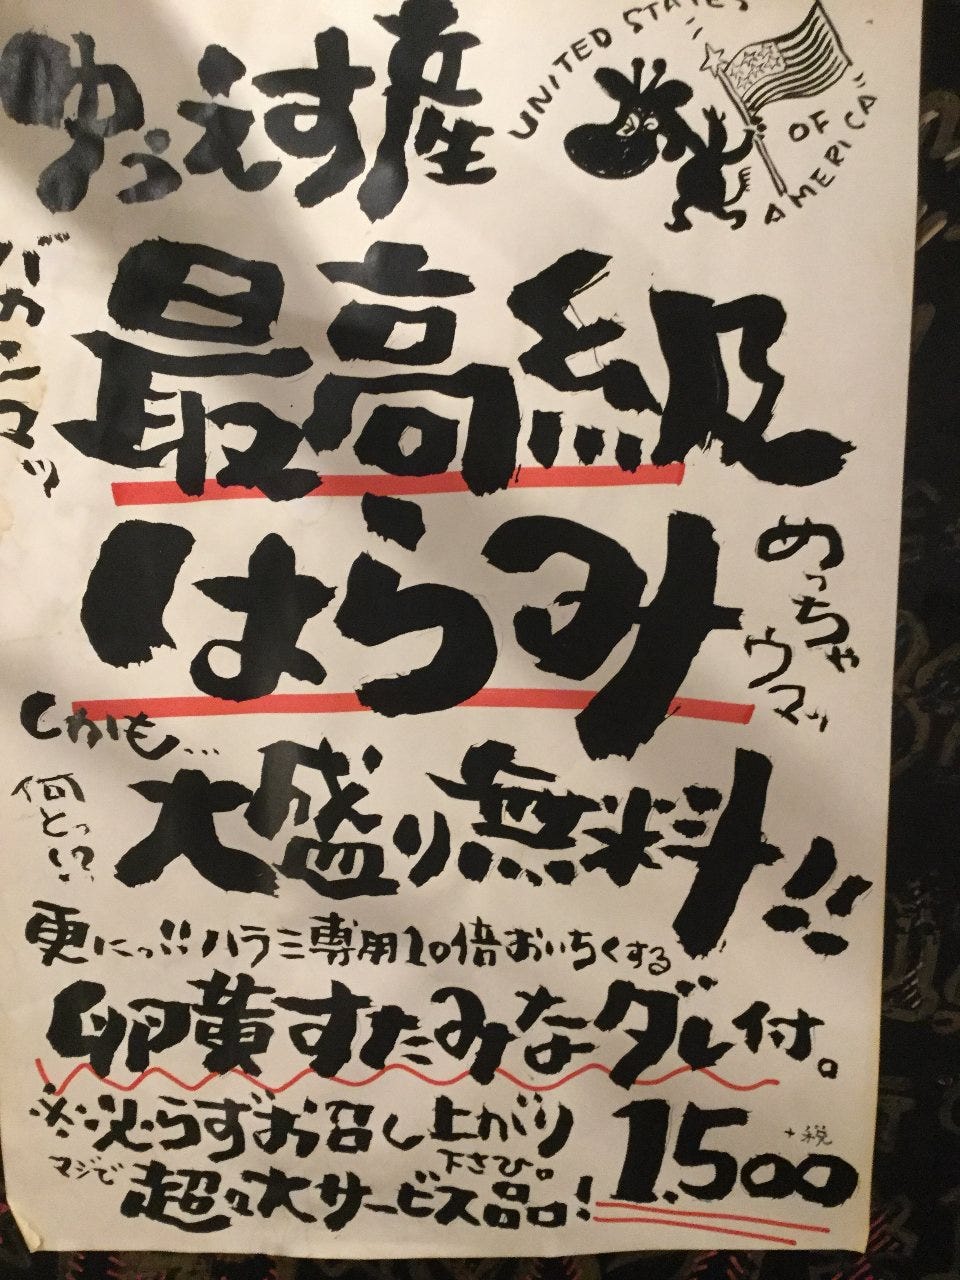 ゆうえす産
UNITED STATES
OF
AMERICA
バカウマッ
最高級
はらみ
めっちゃ
ウマッ
しかも…
何とっ!?
大盛り無料!!
更にっ!!ハラミ専用10倍おいちくする
卵黄すたみなダレ付。
※必らずお召し上がり
下さひ。
マジで
超々大サービス品!
1.500
+税